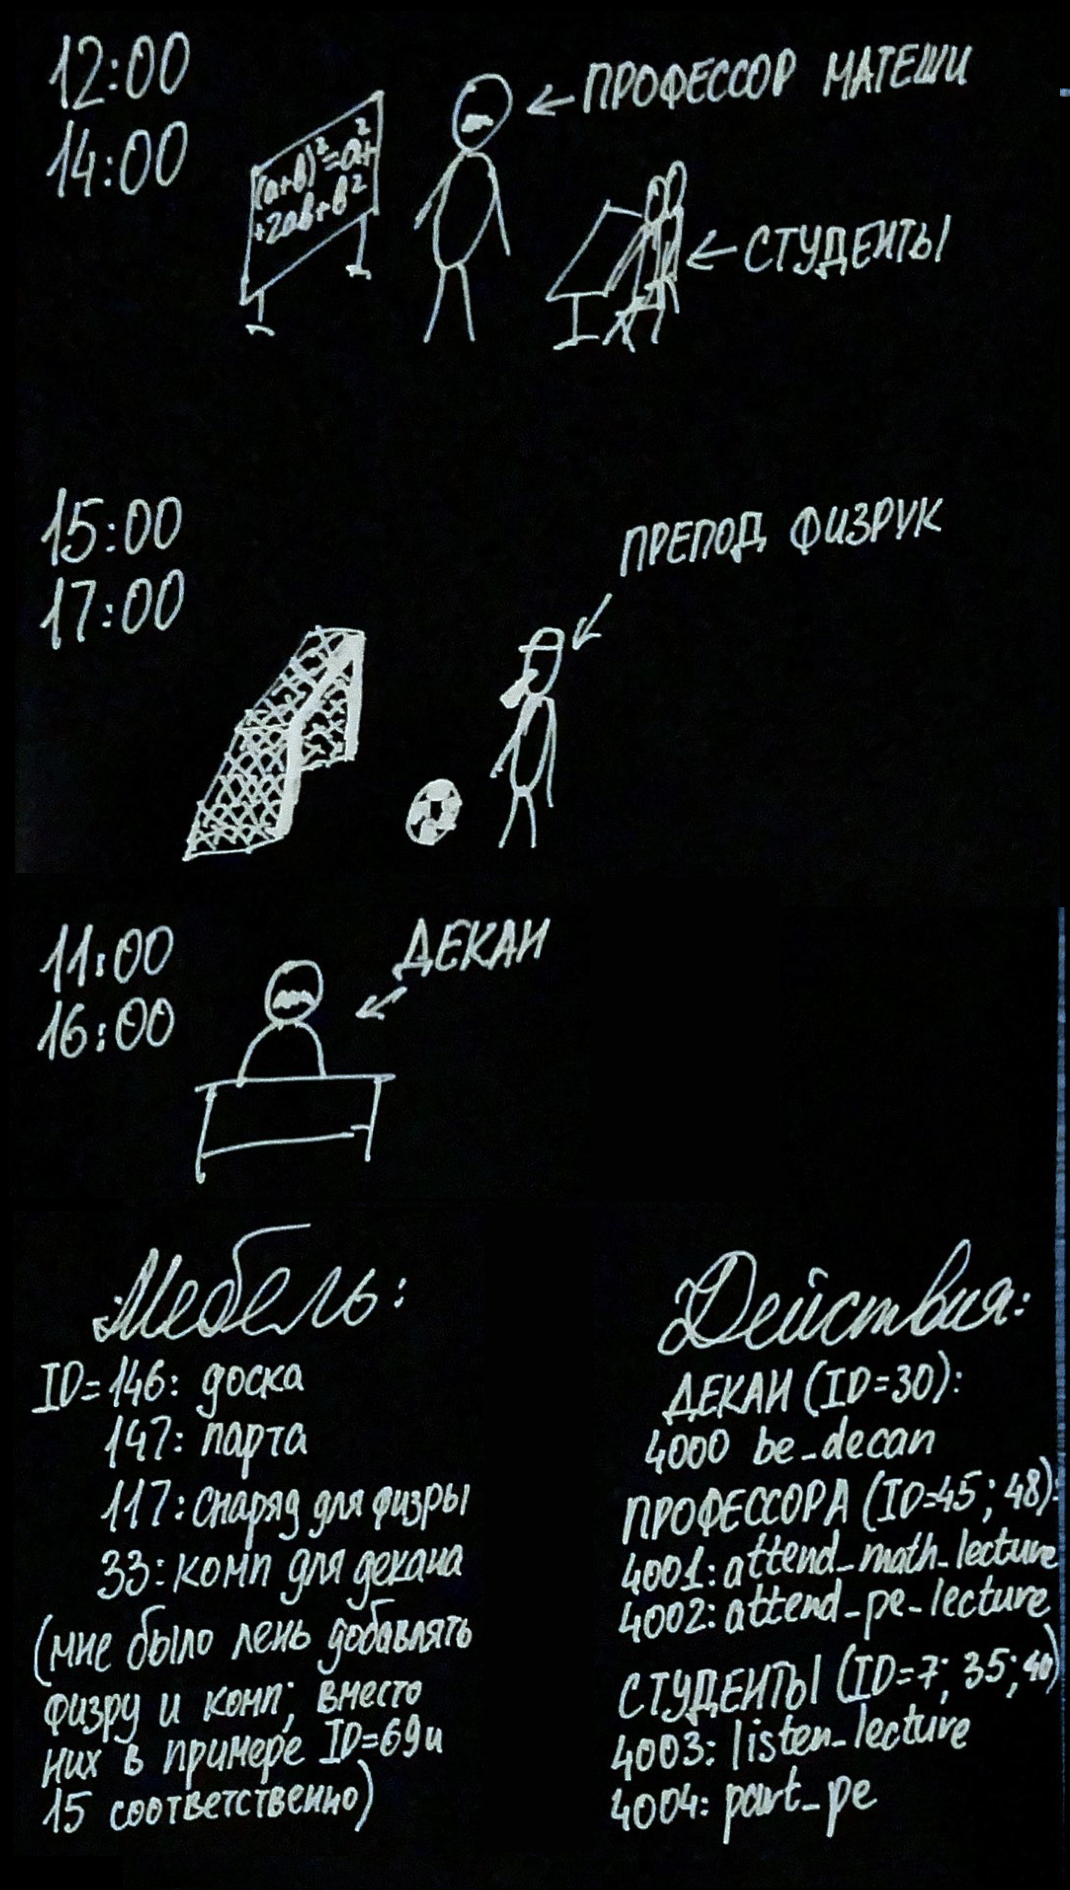 12:00
14:00
ПРОФЕССОР МАТЕШИ
(a+b)²=a²+
+2ab+b²
СТУДЕНТЫ
15:00
17:00
ПРЕПОД ФИЗРУК
11:00
16:00
ДЕКАН
Мебель:
ID=146: доска
147: парта
117: снаряд для физры
33: комп для декана
(мне было лень добавлять
физру и комп; вместо
них в примере ID=69 и
15 соответственно)
Действия:
ДЕКАН (ID=30):
4000 be_decan
ПРОФЕССОРА (ID=45; 48):
4001: attend_math_lecture
4002: attend_pe_lecture
СТУДЕНТЫ (ID=7; 35; 40)
4003: listen_lecture
4004: part_pe